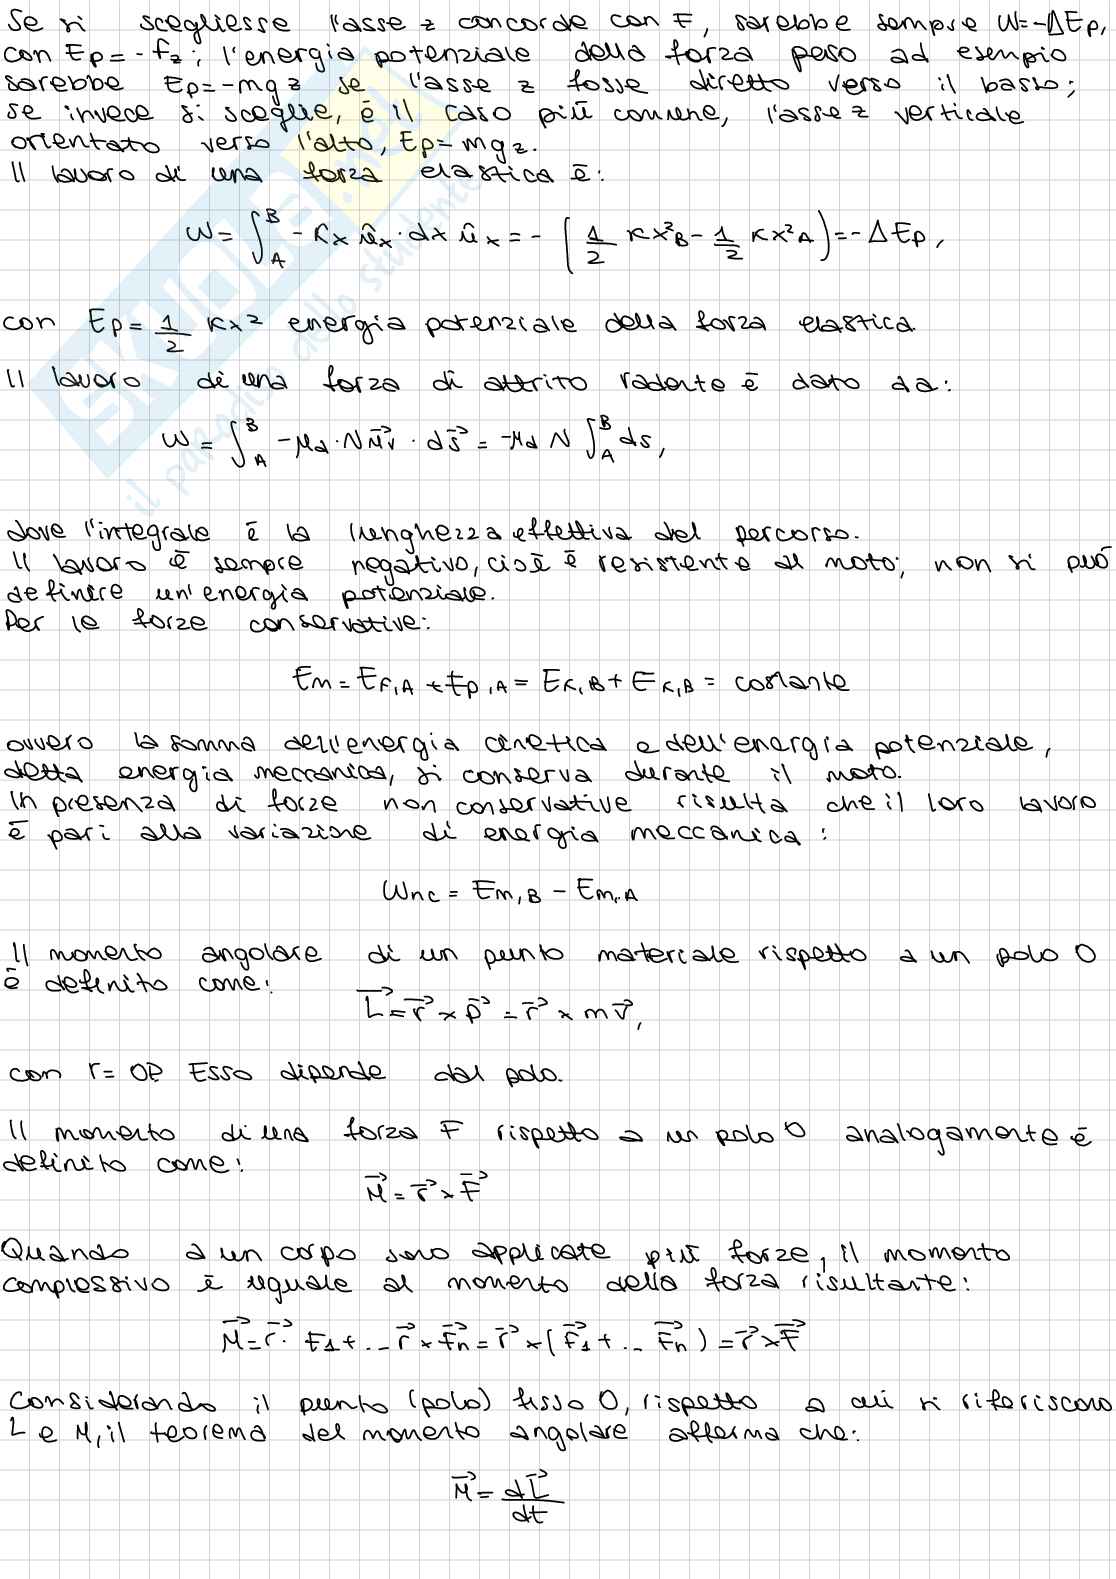 Se si scegliesse l'asse z concorde con F, sarebbe sempre W=-ΔEp,
con Ep=-Fz; l'energia potenziale della forza peso ad esempio
sarebbe Ep=-mgz se l'asse z fosse diretto verso il basso;
se invece si sceglie, è il caso più comune, l'asse z verticale
orientato verso l'alto, Ep=mgz.
Il lavoro di una forza elastica è:
W = ∫_A^B -Kx ûx · dx ûx = -(1/2 Kx²B - 1/2 Kx²A) = -ΔEp,
con Ep = 1/2 Kx² energia potenziale della forza elastica
Il lavoro di una forza di attrito radente è dato da:
W = ∫_A^B -μd · N u⃗v · ds⃗ = -μd N ∫_A^B ds,
dove l'integrale è la lunghezza effettiva del percorso.
Il lavoro è sempre negativo, cioè è resistente al moto; non si può
definire un'energia potenziale.
Per le forze conservative:
Em = EK,A + Ep,A = EK,B + EK,B = costante
ovvero la somma dell'energia cinetica e dell'energia potenziale,
detta energia meccanica, si conserva durante il moto.
In presenza di forze non conservative risulta che il loro lavoro
è pari alla variazione di energia meccanica:
Wnc = Em,B - Em,A
Il momento angolare di un punto materiale rispetto a un polo O
è definito come:
L⃗ = r⃗ × p⃗ = r⃗ × mv⃗,
con r = OP. Esso dipende dal polo.
Il momento di una forza F rispetto a un polo O analogamente è
definito come:
M⃗ = r⃗ × F⃗
Quando a un corpo sono applicate più forze, il momento
complessivo è uguale al momento della forza risultante:
M⃗ = r⃗ · F1 + ... r⃗ × F⃗n = r⃗ × (F⃗1 + ... F⃗n) = r⃗ × F⃗
Considerando il punto (polo) fisso O, rispetto a cui si riferiscono
L e M, il teorema del momento angolare afferma che:
M⃗ = dL⃗/dt
SKUOLA.net
il paradiso dello studente